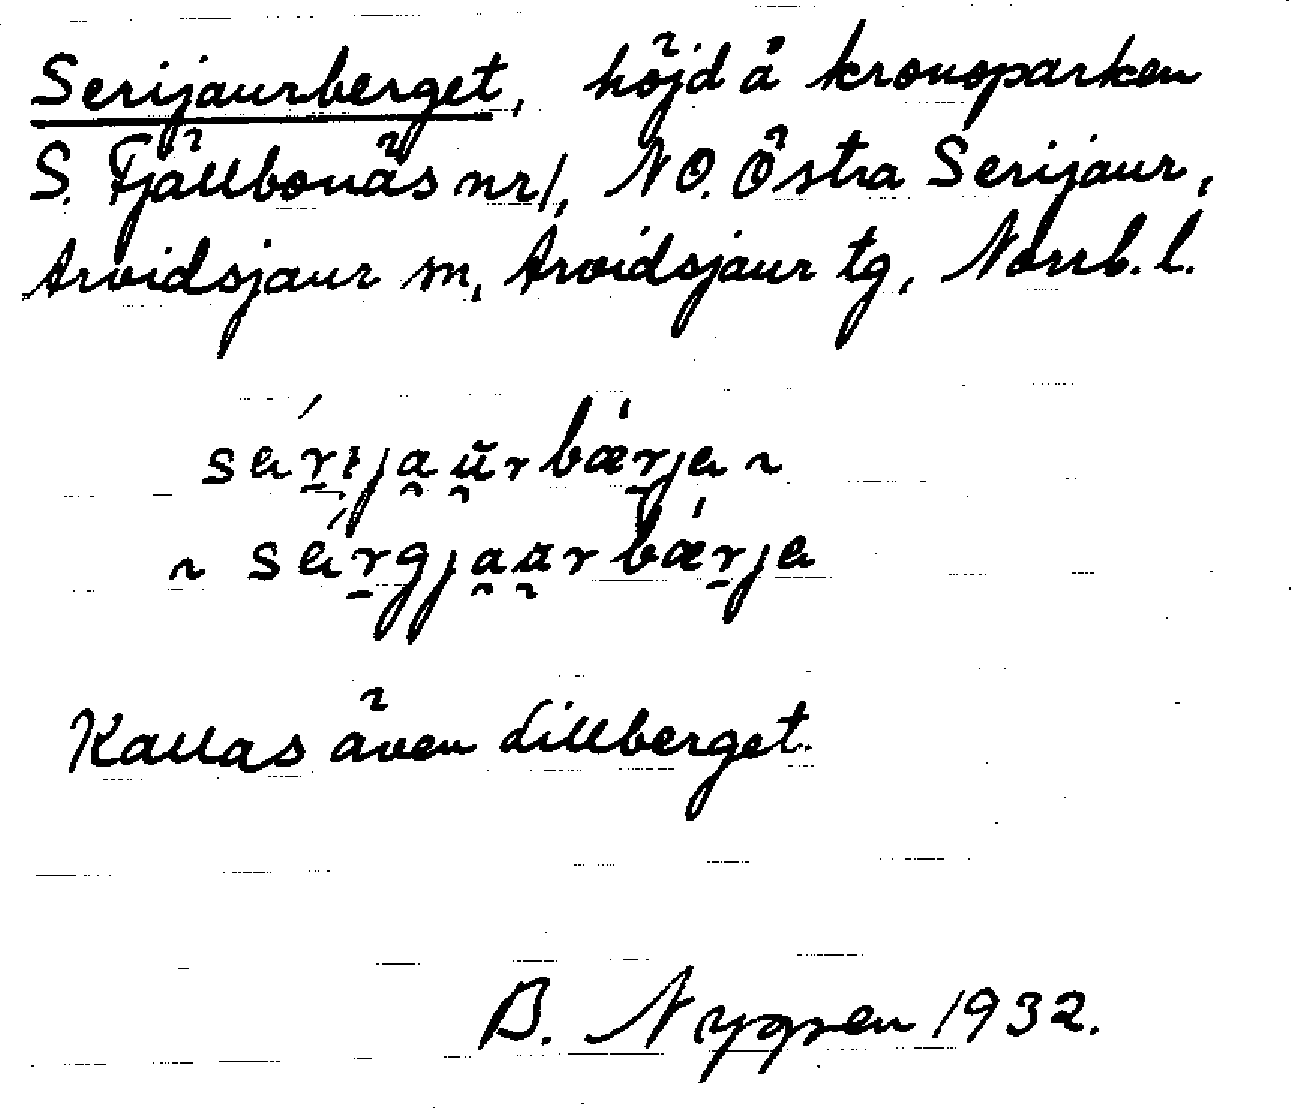 Serijaurberget, höjd å kronoparken
S. Fjällbonäs nr 1, NO. Östra Serijaur,
Arvidsjaur sn, Arvidsjaur tg, Norrb. l.
sérijaurbǽrja ~
~ sérgjaarbǽrja
Kallas även Lillberget.
B. Nygren 1932.